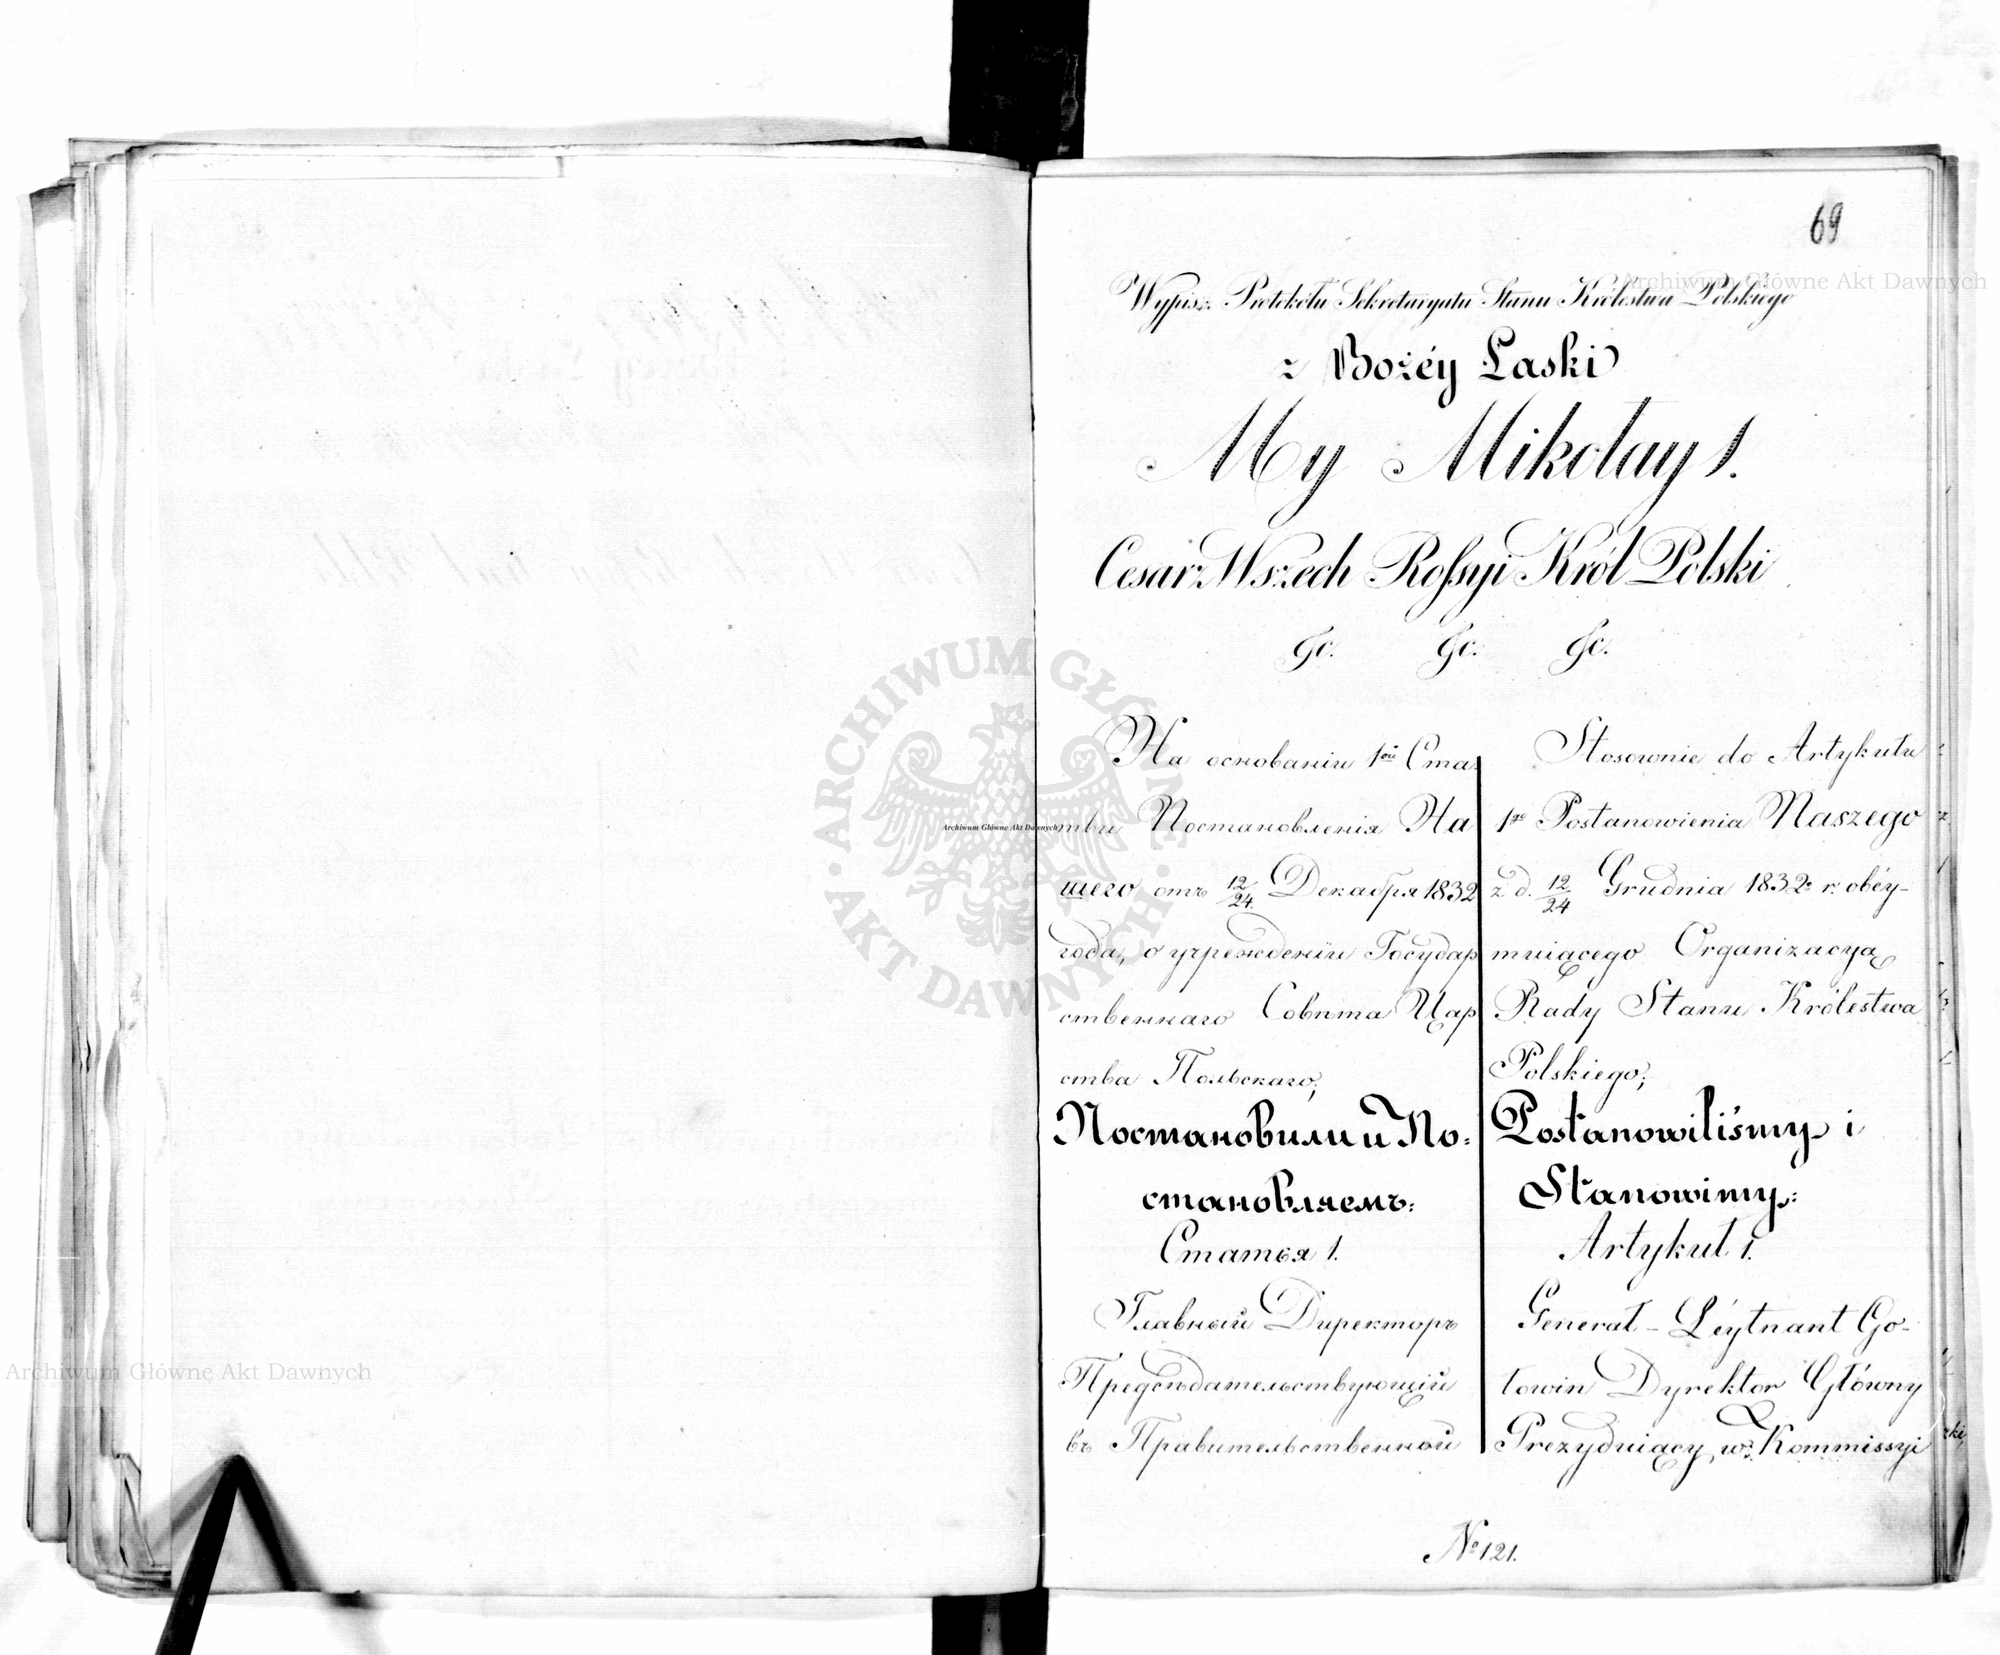 69
Wypis z Protokółu Sekretaryatu Stanu Królestwa Polskiego
z Bożéy Łaski
My Mikołay 1.
Cesarz Wszech Rossyi Król Polski
&c. &c. &c.
На основаніи 1ой Ста
тьи Постановленія На
шего отъ 12/24 Декабря 1832
года, о учрежденіи Государ
ственнаго Совѣта Цар
ства Польскаго;
Постановили и По-
становляемъ:
Статья 1.
Главный Директоръ
Предсѣдательствующій
въ Правительственной
Stosownie do Artykułu
1go Postanowienia Naszego
z d. 12/24 Grudnia 1832 r. obéy-
muiącego Organizacyą
Rady Stanu Królestwa
Polskiego;
Postanowiliśmy i
Stanowimy:
Artykuł 1.
Generał-Léytnant Go-
łowin Dyrektor Główny
Prezyduiący w Kommissyi
No 121.
Archiwum Główne Akt Dawnych
Archiwum Główne Akt Dawnych
Archiwum Główne Akt Dawnych
ARCHIWUM GŁÓWNE AKT DAWNYCH